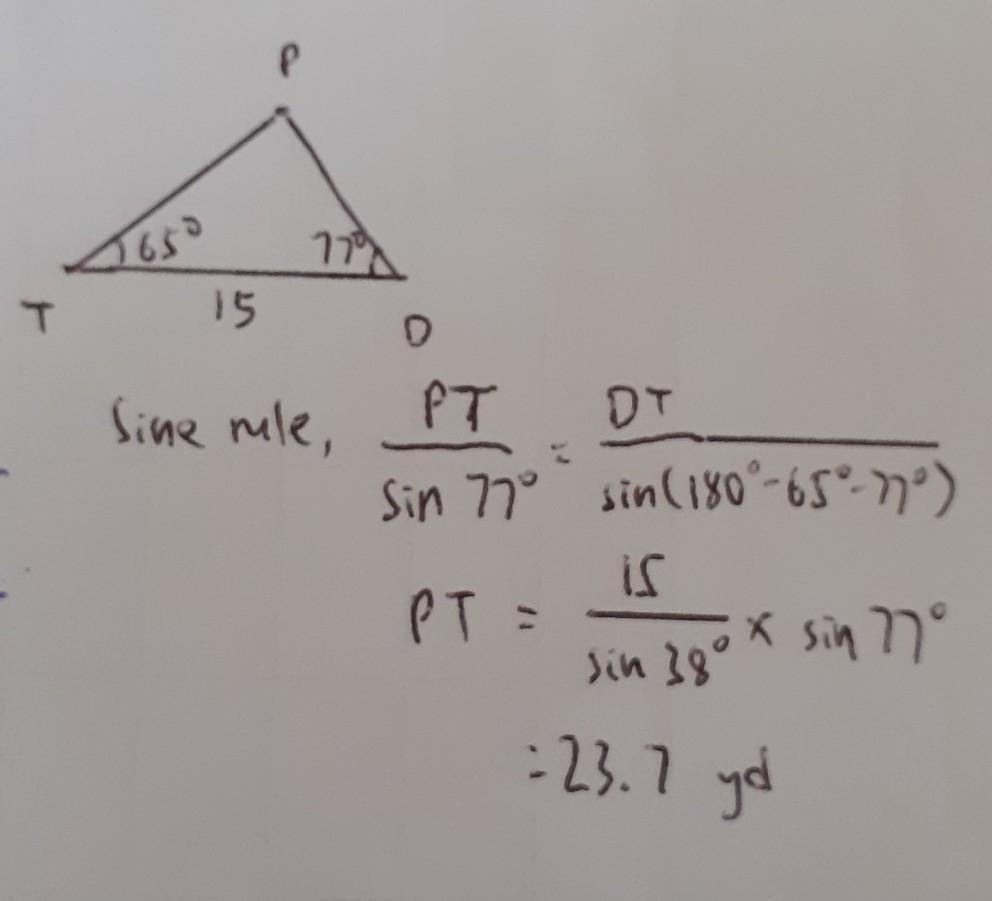 P
65° 77°
T 15 D
Sine rule, PT / sin 77° = DT / sin(180°-65°-77°)
PT = 15 / sin 38° × sin 77°
= 23.7 yd